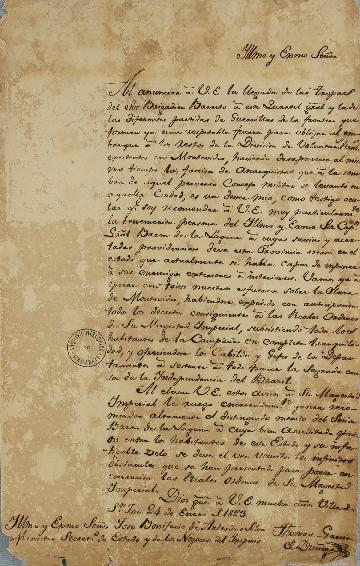 Illmo y Exmo Señor
Al anunciar à V.E. la llegada de las tropas
del Sor Brigadier Barreto à este Quartel gral y la de
las diferentes partidas de Guerrillas de la frontera que
forman ya una respetable fuerza para obligar al em-
barque à los restos de la Division de Voluntarios Reales
existentes en Montevideo, haciendo desaparecer al mis-
mo tiempo la faccion de Anarquistas que à la som-
bra de aquel perverso Consejo militar se levanta en
aquella Ciudad, es un deber mio, como testigo
soy recomendar à V.E. muy particularmente
la benemerita persona del Illmo y Exmo Sor Capn
Gral Baron de la Laguna à cuyas sabias y acer-
tadas providencias deve esta Provincia estar en el
estado que actualmente se halla capaz de imponer
à sus enemigos exteriores è interiores. Vamos ya à
operar con todos nuestros esfuerzos sobre la Plaza
de Montevideo, habiendose expedido con anticipacion
todo lo decreto consiguiente à las Reales Ordenes
de Su Magestad Imperial, subsistiendo todos los
habitantes de la Campaña en completa tranquili-
dad, y ofreciendose los Cabildos y Gefes de los Depar-
tamentos à sostener à todo trance la Sagrada cau-
sa de la Independencia del Brazil.
Al elevar V.E. estos avisos à Su Magestad
Imperial le ruego encarecidamente quiera reco-
mendar altamente el distinguido merito del Señor
Baron de la Laguna à cuya bien acreditada opi-
nion entre los habitantes de este Estado y su infa-
tigable zelo se deve el ver vencidos los infinitos
obstaculos que se han presentado para poner en
execucion las Reales Ordenes de Su Magestad
Imperial.
Dios gue à V.E. muchos años. Villa de
Sn Jose 24 de Enero de 1823.
Illmo y Exmo Señor Jose Bonifacio de Andrada e Silva
Ministro Secreto de Estado y de los Negocios del Imperio
Thomas Garcia
de Zuñiga